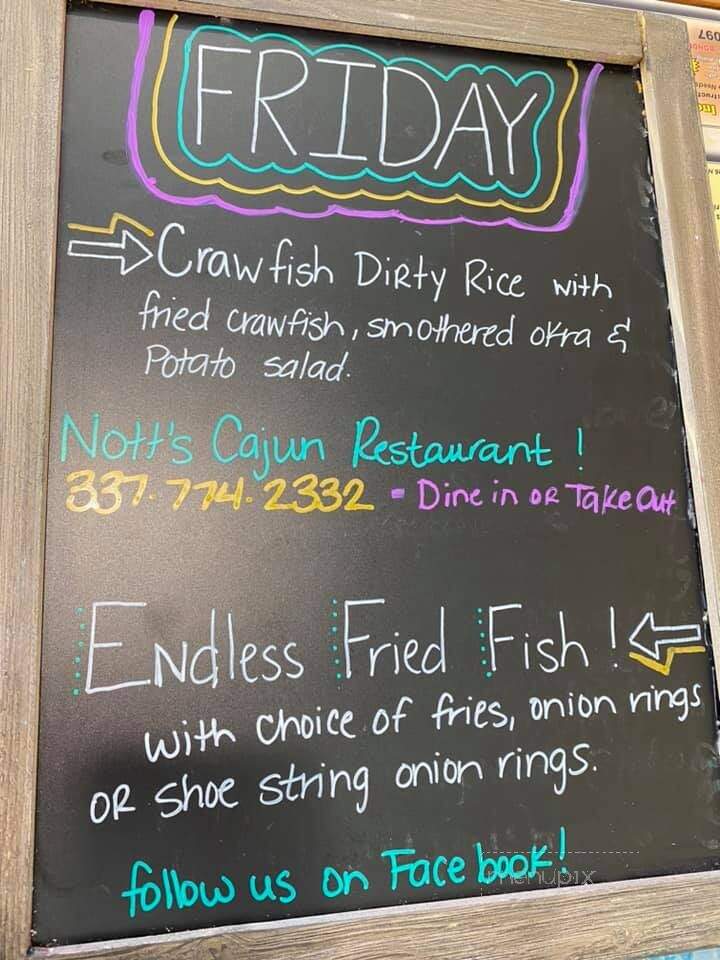 FRIDAY
Crawfish Dirty Rice with
fried crawfish, smothered okra &
Potato salad.
Nott's Cajun Restaurant!
337.774.2332 - Dine in OR Take Out
Endless Fried Fish!
with choice of fries, onion rings
OR shoe string onion rings.
follow us on Facebook!
menupix